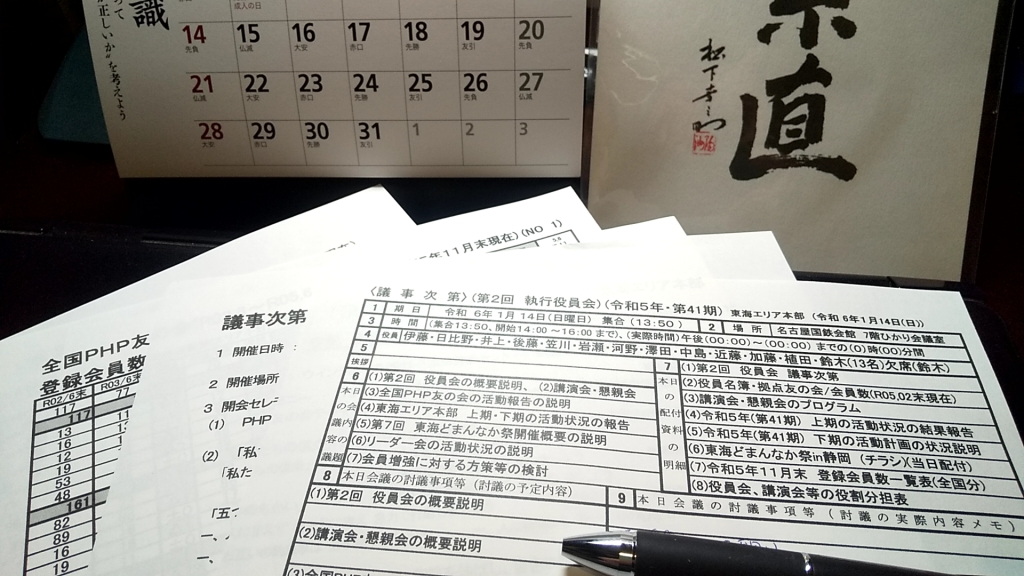 成人の日
識
めて
が正しいか"を考えよう
14 15 16 17 18 19 20
先負 仏滅 大安 赤口 先勝 友引 先負
21 22 23 24 25 26 27
仏滅 大安 赤口 先勝 友引 先負 仏滅
28 29 30 31 1 2 3
大安 赤口 先勝 友引
直
松下幸之助
年11月末現在)(NO 1)
全国PHP友
登録会員数
R02/6末 R03/6末
117 77
117
13
16
12
19
53
48
161
82
89
16
19
議事次第
1 開催日時:
2 開催場所
3 開会セレ
(1) PHP
(2) 「私
「私た
「五
一、
一、
〈議 事 次 第〉(第2回 執行役員会)(令和5年・第41期) 東海エリア本部 (令和6年1月14日(日))
1 期 日 令和 6年 1月 14日(日曜日) 集合 (13:50) 2 場 所 名古屋国鉄会館 7階ひかり会議室
3 時 間 (集合13:50、開始14:00 ~16:00まで)、(実際時間)午後(00:00)~(00:00)までの(0)時(00)分間
4 役員 伊藤・日比野・井上・後藤・笠川・岩瀬・河野・澤田・中島・近藤・加藤・植田・鈴木(13名)欠席(鈴木)
5 挨拶
6 本日の会議内容の議題
(1)第2回 役員会の概要説明、(2)講演会・懇親会
(3)全国PHP友の会の活動報告の説明
(4)東海エリア本部 上期・下期の活動状況の報告
(5)第7回 東海どまんなか祭開催概要の説明
(6)リーダー会の活動状況の説明
(7)会員増強に対する方策等の検討
7 本日の配付資料の明細
(1)第2回 役員会 議事次第
(2)役員名簿・拠点友の会/会員数(R05,02末現在)
(3)講演会・懇親会のプログラム
(4)令和5年(第41期) 上期の活動状況の結果報告
(5)令和5年(第41期) 下期の活動計画の状況説明
(6)東海どまんなか祭in静岡 (チラシ)(当日配付)
(7)令和5年11月末 登録会員数一覧表(全国分)
(8)役員会、講演会等の役割分担表
8 本日会議の討議事項等 (討議の予定内容)
9 本日会議の討議事項等 (討議の実際内容メモ)
(1)第2回 役員会の概要説明
(2)講演会・懇親会の概要説明
(3)全国PH